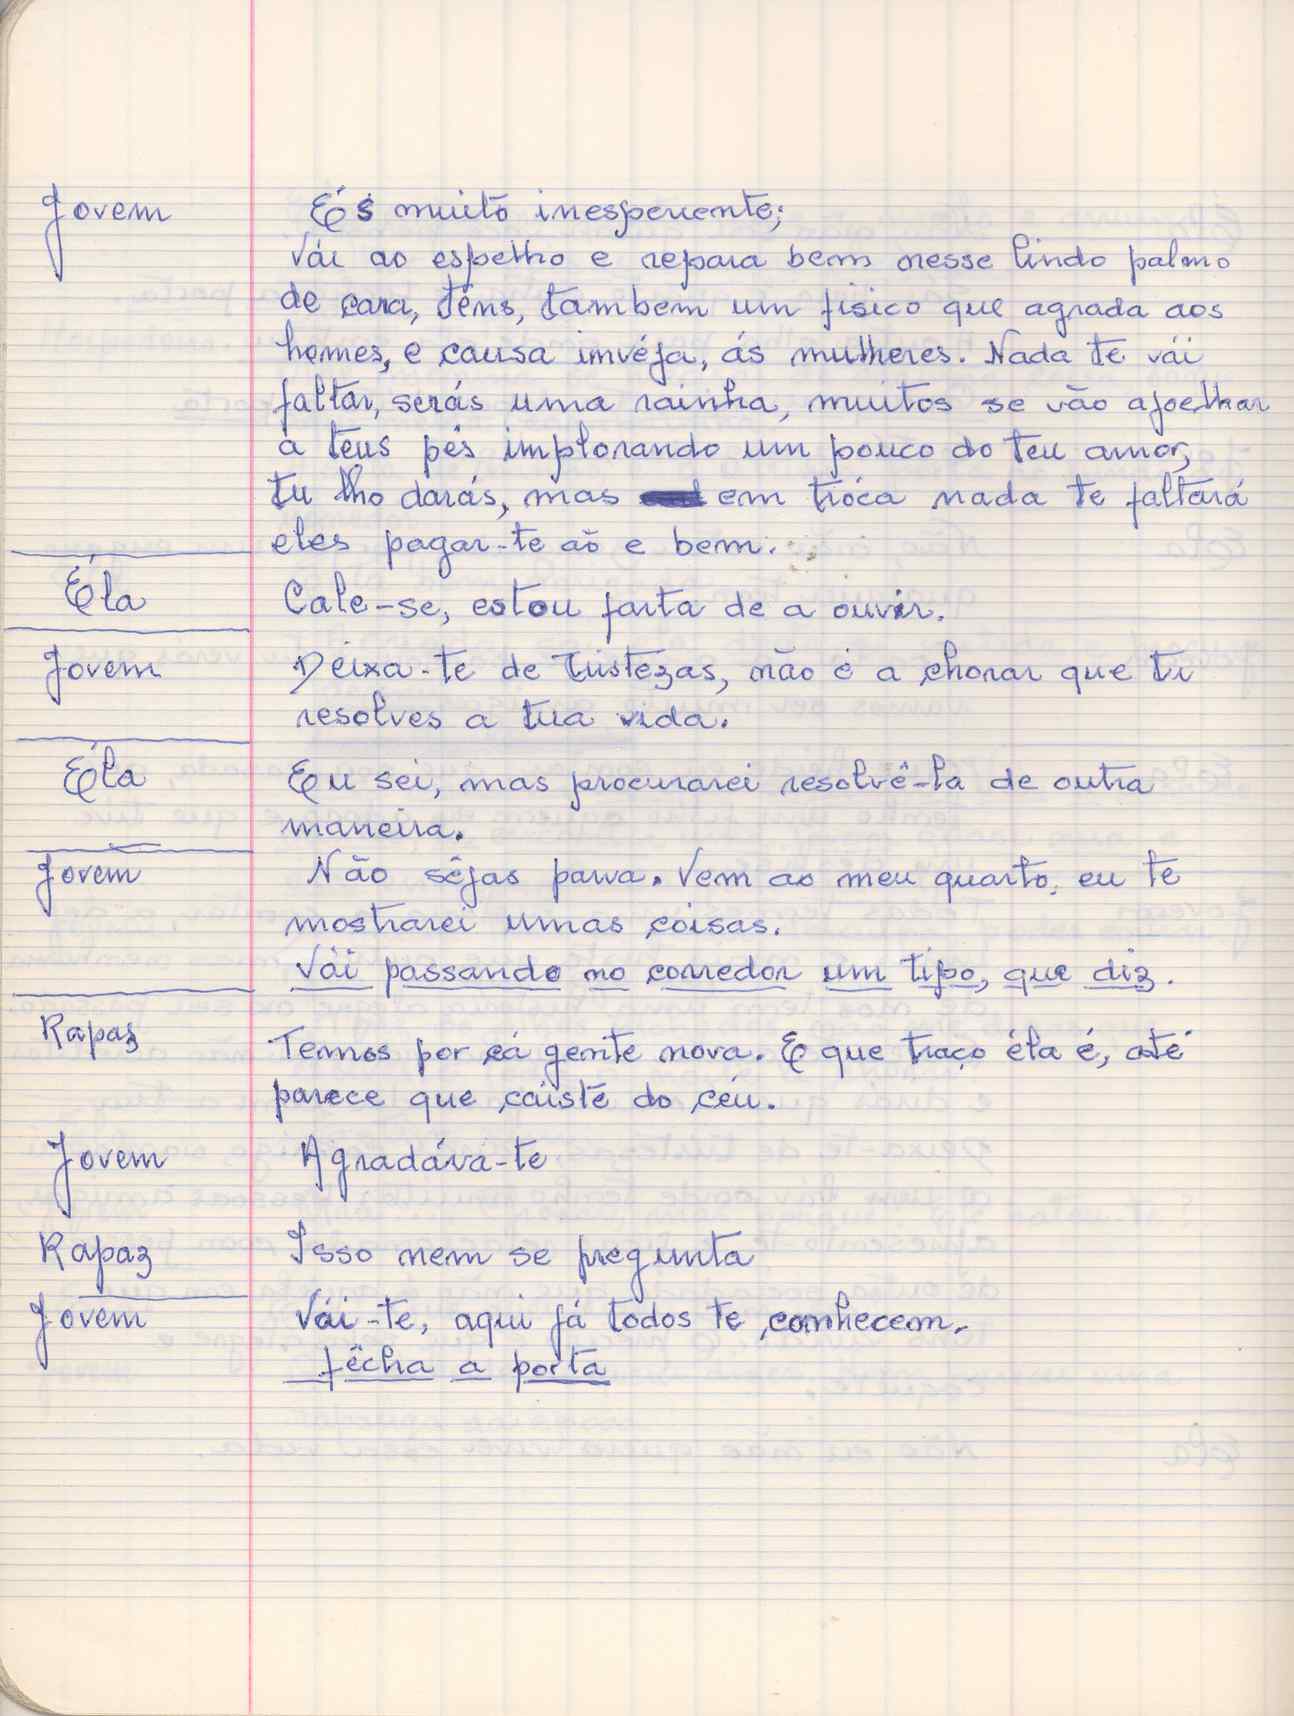 Jovem És muito inesperiente;
Vái ao espelho e repara bem nesse lindo palmo
de cara, téns, tambem um fisico que agrada aos
homes, e causa invéja, ás mulheres. Nada te vái
faltar, serás uma rainha, muitos se vão ajoelhar
a teus pés implorando um pouco do teu amor,
tu lho darás, mas em tróca nada te faltará
eles pagar-te aõ e bem.
Éla Cale-se, estou farta de a ouvir.
Jovem Deixa-te de tristezas, não é a chorar que ti
resolves a tua vida.
Éla Eu sei, mas procurarei resolvê-la de outra
maneira.
Jovem Não sêjas parva. Vem ao meu quarto, eu te
mostrarei umas coisas.
Vái passando no corredor um tipo, que diz.
Rapaz Temos por cá gente nova. E que traço éla é, até
parece que caíste do céu.
Jovem Agradáva-te
Rapaz Isso nem se pregunta
Jovem Vái-te, aqui já todos te conhecem.
fêcha a porta